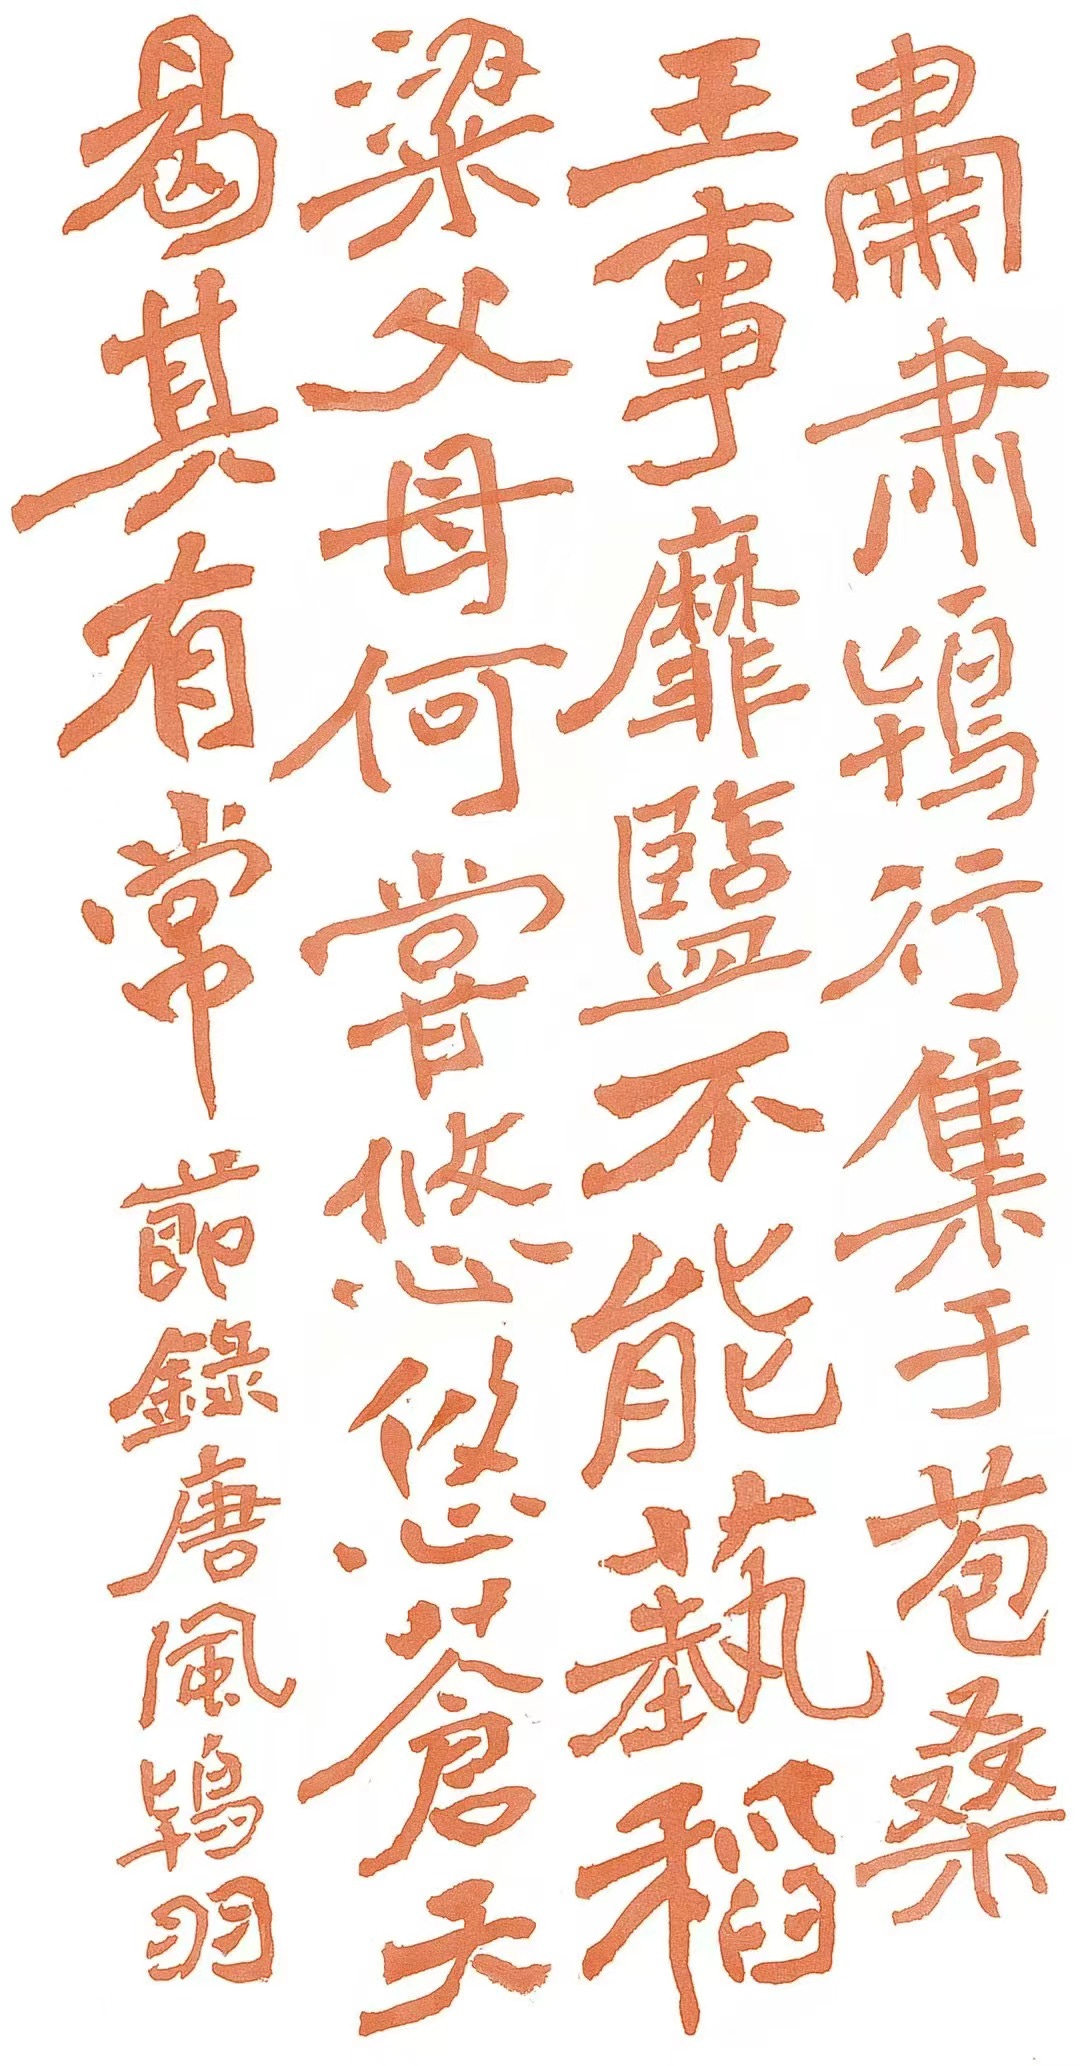 肅肅鴇行集于苞桑
王事靡盬不能蓺稻
粱父母何嘗悠悠蒼天
曷其有常 節錄唐風鴇羽